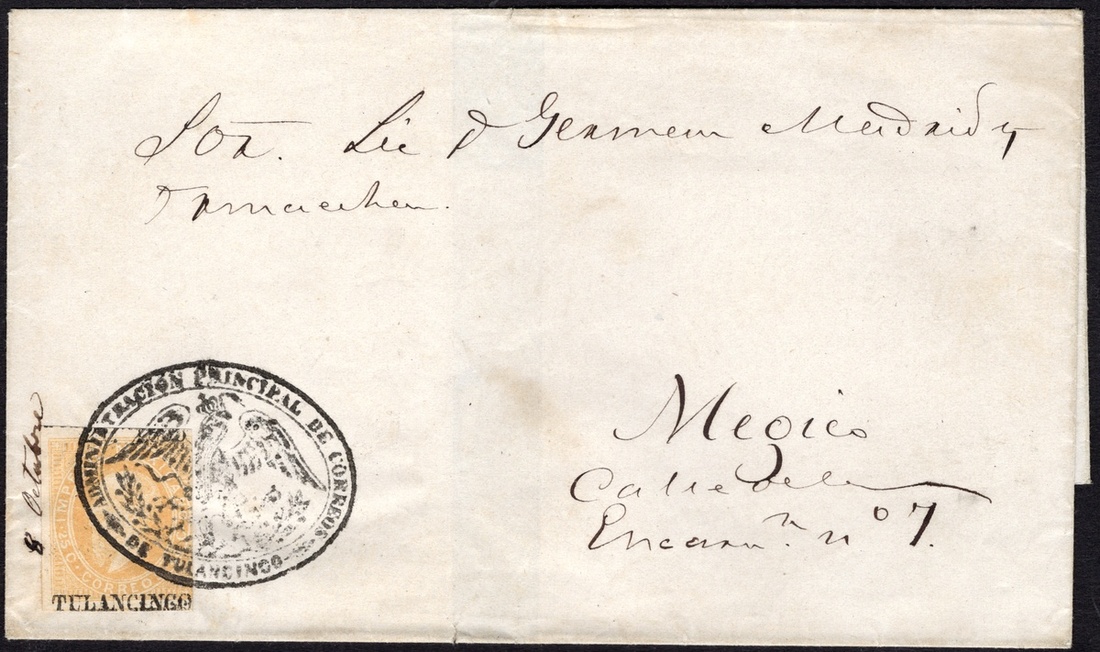 Sor. Lic D German Madrid y
Ormaechea.
Megico
Calle de la
Encarn.n n o 7.
8 Octubre
ADMINISTRACIÓN PRINCIPAL DE CORREOS
DE TULANCINGO
CORREO
TULANCINGO